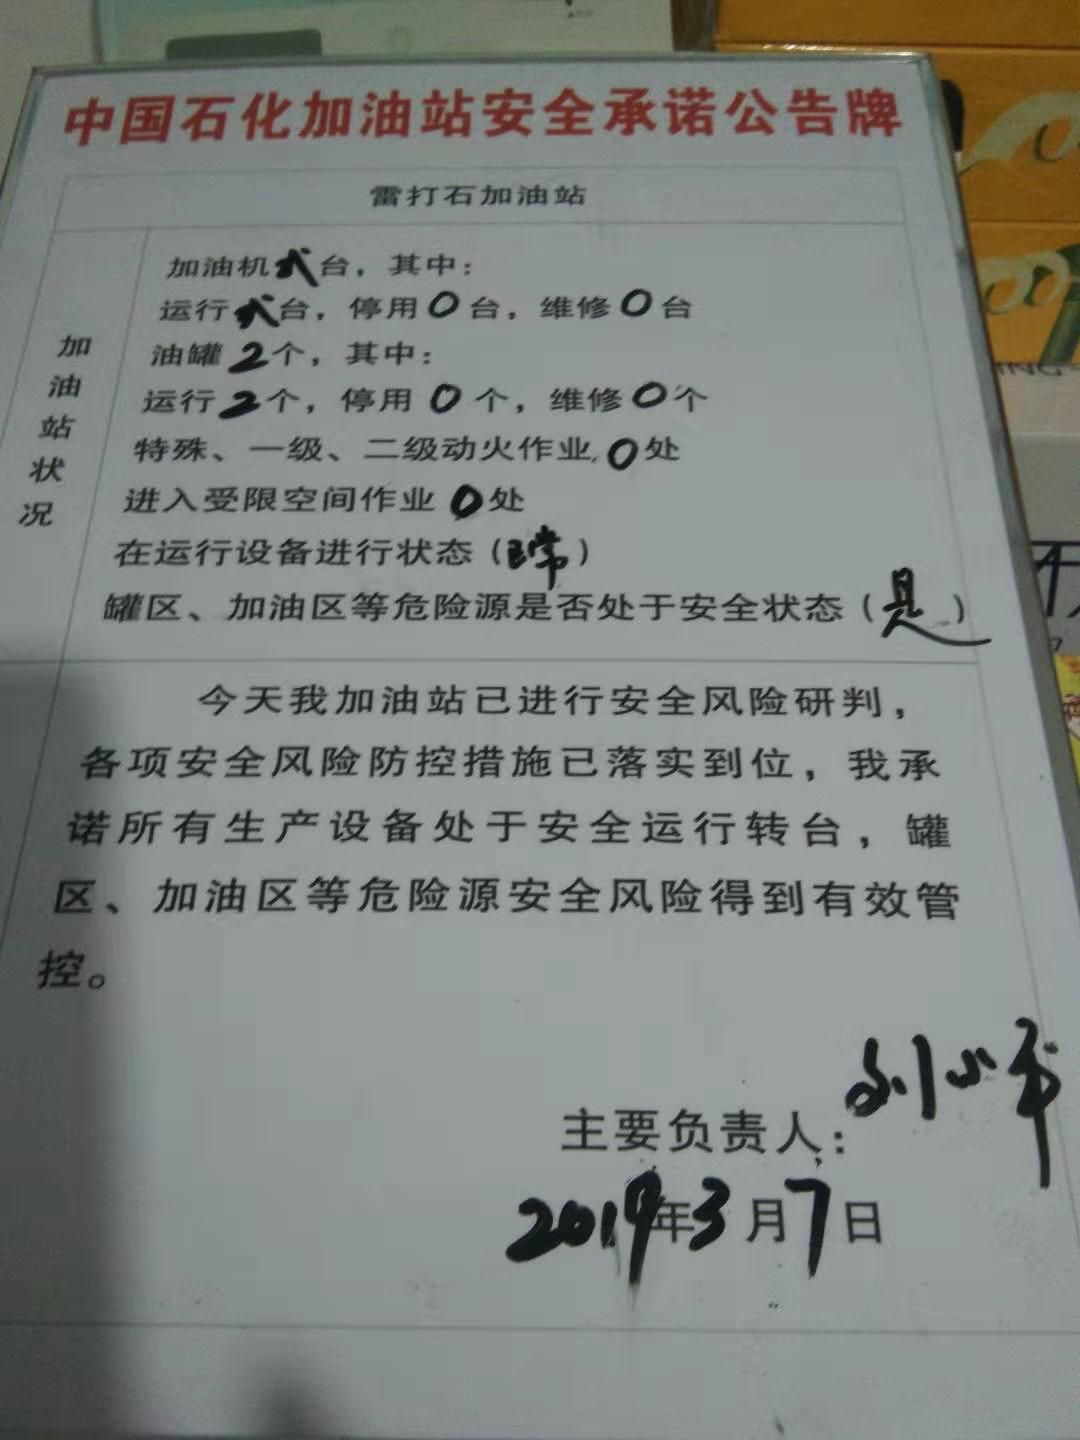 中国石化加油站安全承诺公告牌
雷打石加油站
加油站状况
加油机弍台，其中：
运行弍台，停用0台，维修0台
油罐2个，其中：
运行2个，停用0个，维修0个
特殊、一级、二级动火作业，0处
进入受限空间作业0处
在运行设备进行状态（正常）
罐区、加油区等危险源是否处于安全状态（是）
今天我加油站已进行安全风险研判，
各项安全风险防控措施已落实到位，我承
诺所有生产设备处于安全运行转台，罐
区、加油区等危险源安全风险得到有效管
控。
主要负责人：刘小
2019年3月7日